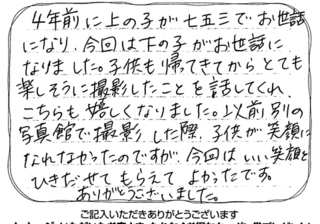 4年前に上の子が七五三でお世話
になり、今回は下の子がお世話に
なりました。子供も帰ってきてからとても
楽しそうに撮影したことを話してくれ、
こちらも嬉しくなりました。以前別の
写真館で撮影した際、子供が笑顔に
なれなかったのですが、今回はいい笑顔を
ひきだせてもらえてよかったです。
ありがとうございました。
ご記入いただきありがとうございます